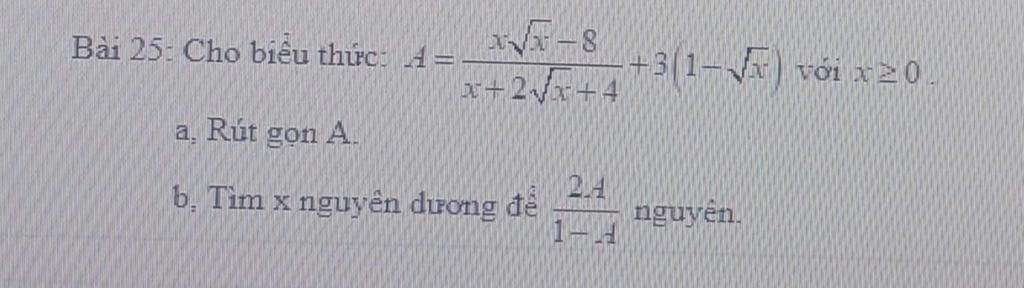 Bài 25: Cho biểu thức: A = \frac{x\sqrt{x}-8}{x+2\sqrt{x}+4}+3(1-\sqrt{x}) với x ≥ 0.
a, Rút gọn A.
b, Tìm x nguyên dương để \frac{2A}{1-A} nguyên.